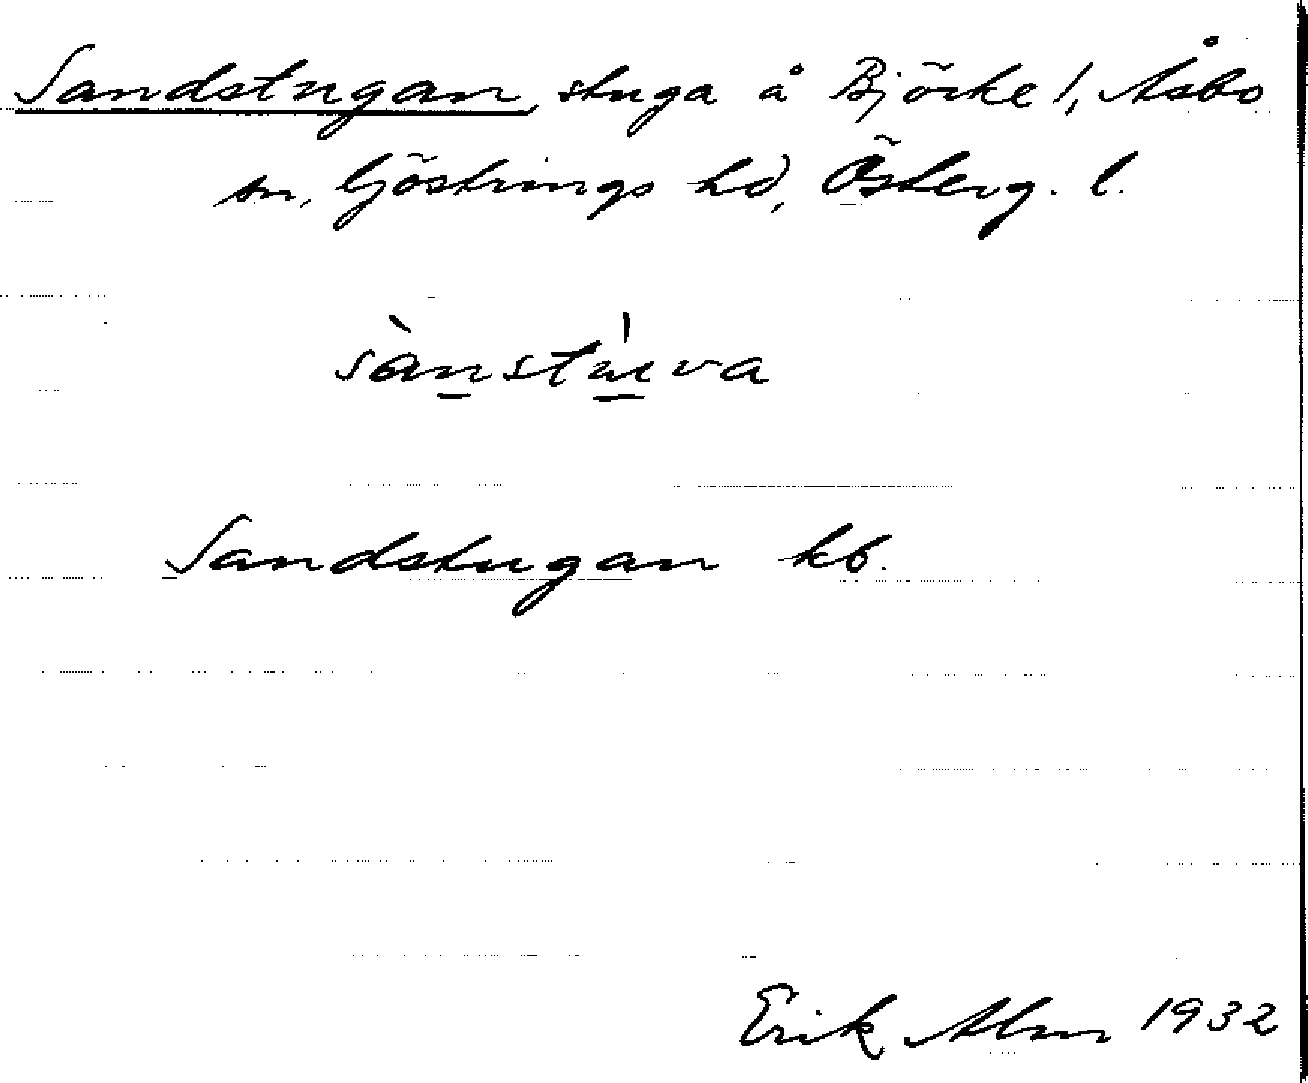 Sandstugan, stuga å Björke 1, Åsbo
sn, Göstrings hd, Österg. l.
Sandstugan kb.
Erik Alm 1932